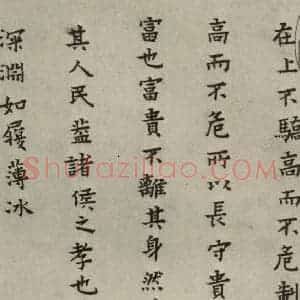 在上不驕高而不危制
高而不危所以長守貴
富也富貴不離其身然
其人民蓋諸侯之孝也
深淵如履薄冰
Shufaziliao.com